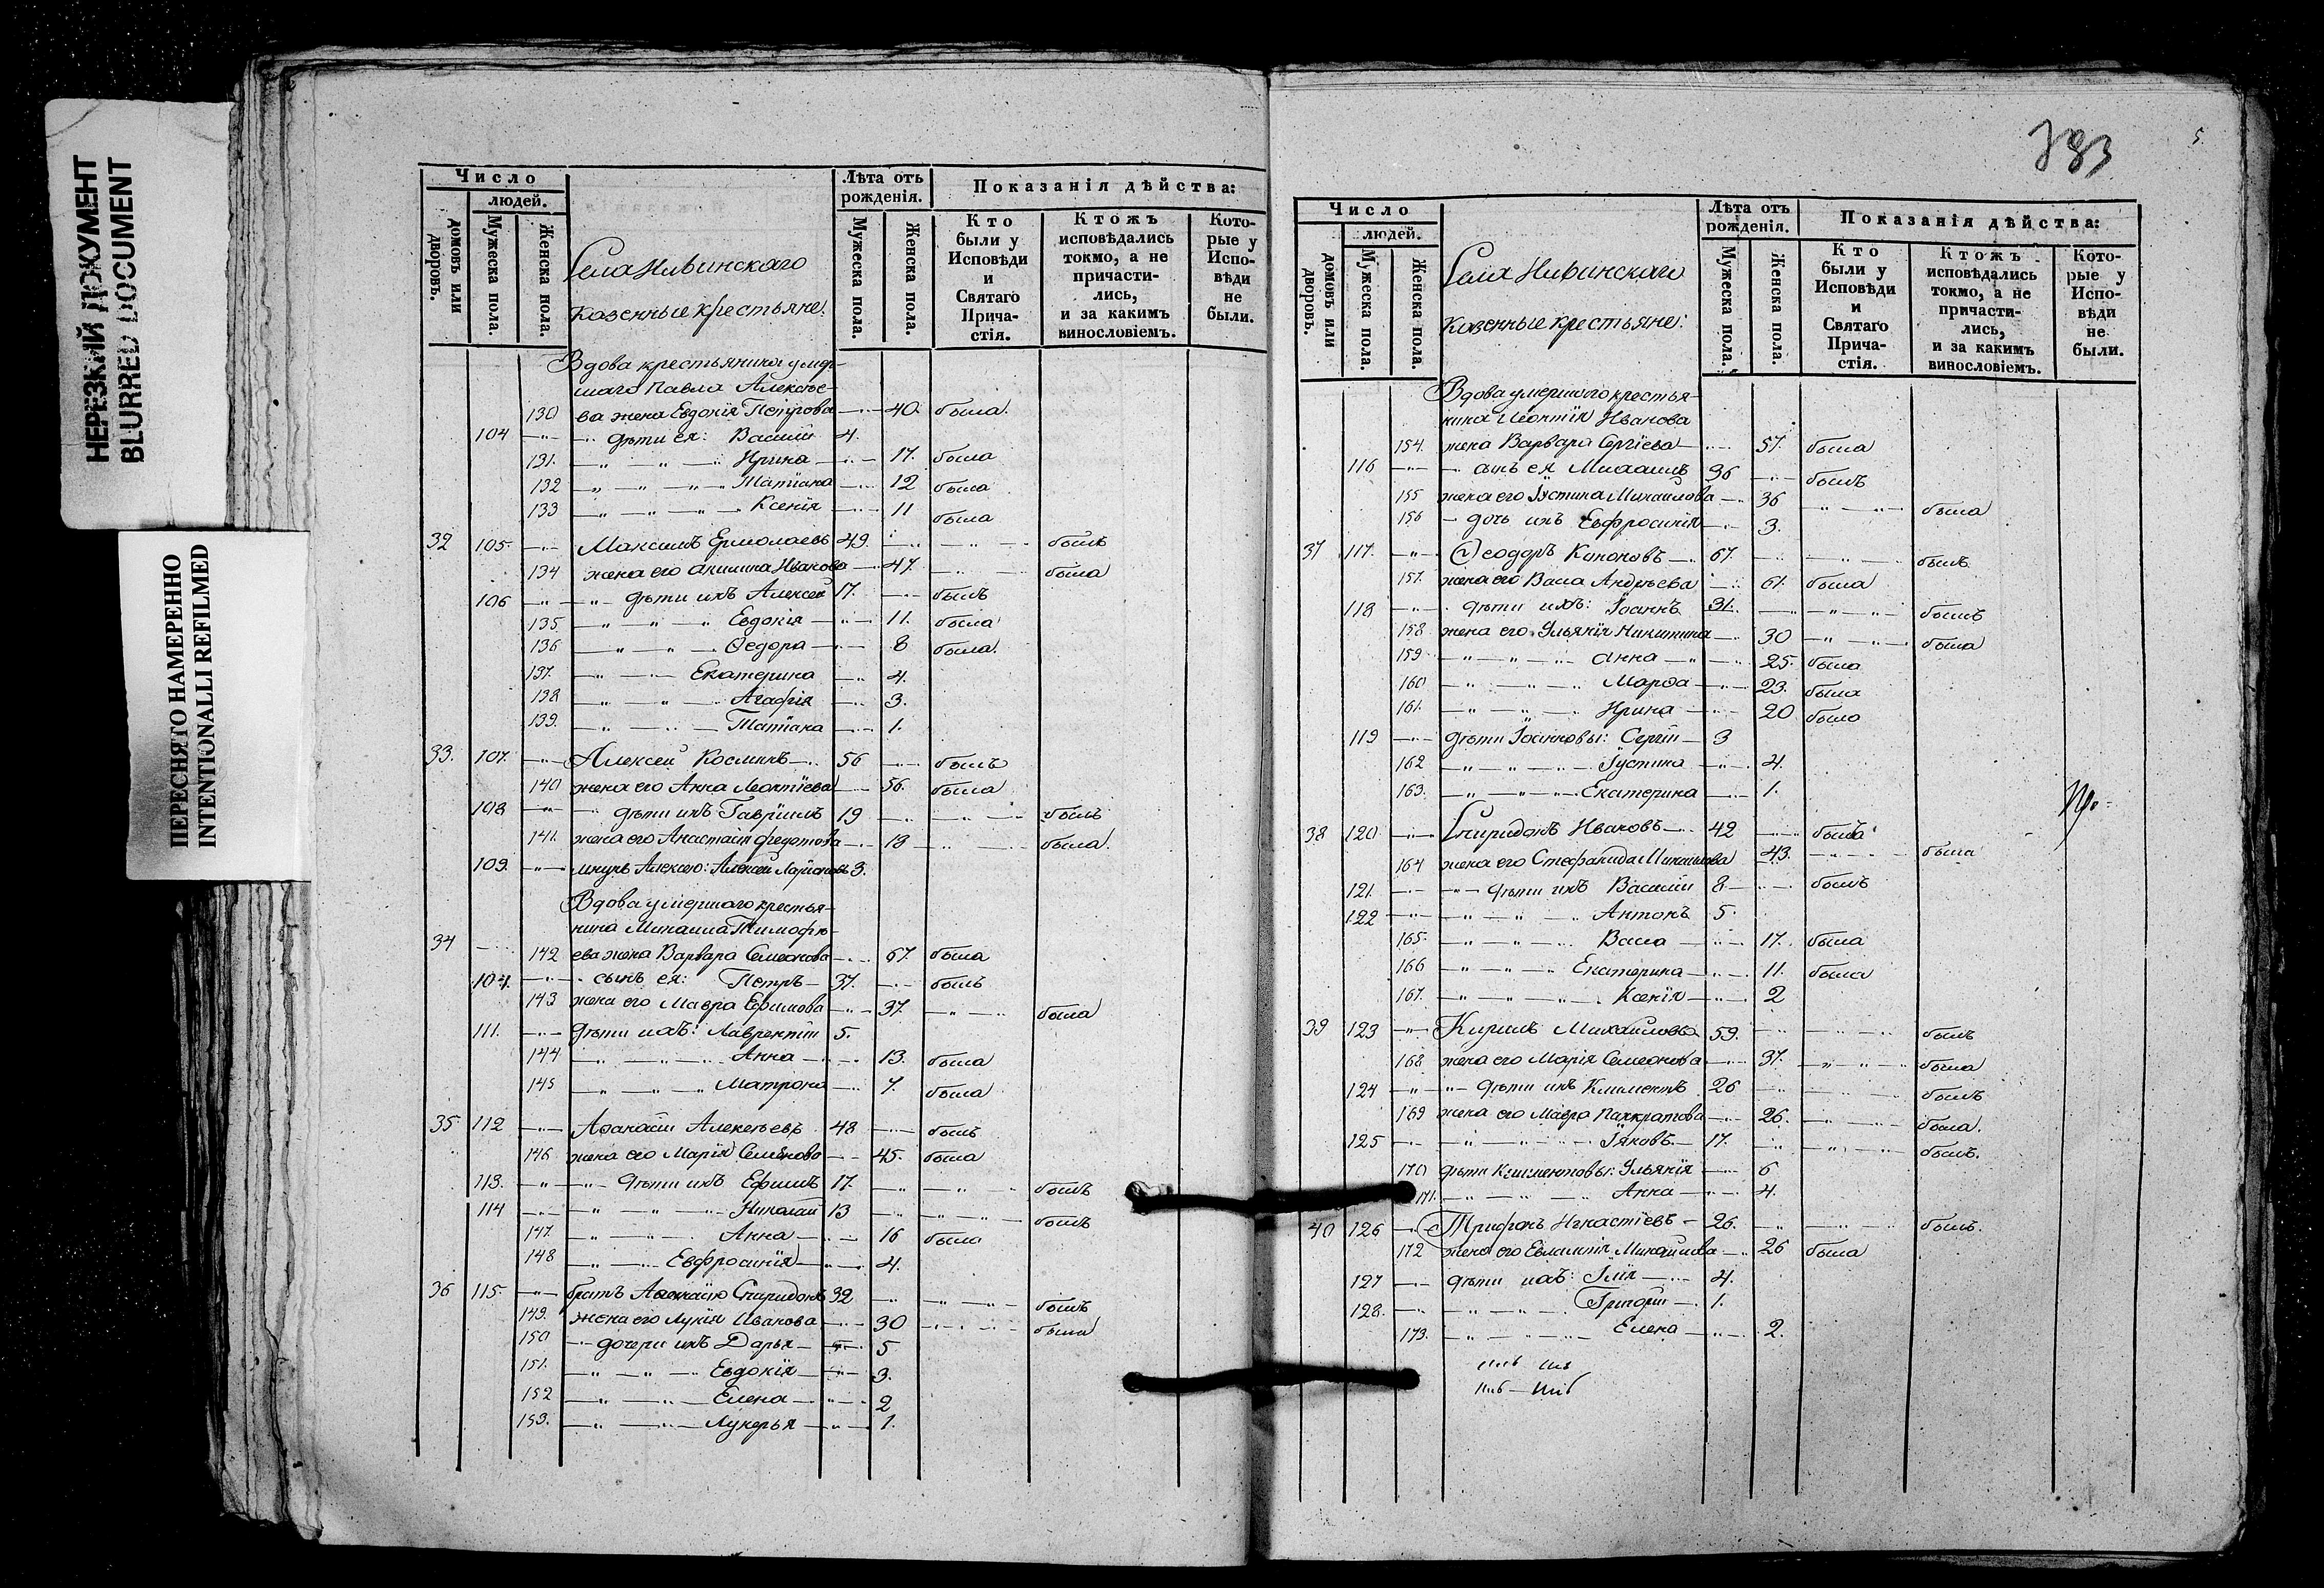 НЕРЕЗКИЙ ДОКУМЕНТ
BLURRED DOCUMENT
ПЕРЕСНЯТО НАМЕРЕННО
INTENTIONALLI REFILMED
Число
людей.
домовъ или дворовъ.
Мужеска пола.
Женска пола.
Села Нивинскаго
казенные крестьяне:
Лѣта отъ рожденія.
Мужеска пола.
Женска пола.
Показанія дѣйства:
Кто были у Исповѣди и Святаго Прича-стія.
Ктожъ исповѣдались токмо, а не причасти-лись, и за какимъ винословіемъ.
Кото-рые у Испо-вѣди не были.
Вдова крестьянина умер-
шаго Павла Алексѣе-
130 ва жена Евдокія Петрова 40. была.
104 дѣти ея: Василій 4.
131. Ирина 17. была
132 Татіана 12 была
133 Ксенія 11 была
32 105. Максимъ Ермолаевъ 49. былъ
134 жена его Акилина Иванова 47. была
106 дѣти ихъ Алексей 17. былъ
135 Евдокія 11. была
136 Ѳедора 8 была.
137. Екатерина 4.
138 Агафія 3.
139. Татіана 1.
33. 107. Алексей Косминъ 56 былъ
140 жена его Анна Леонтіева 56. была
108 дѣти ихъ Гавріилъ 19 былъ
141. жена его Анастасія Федотова 18 была.
109. внукъ Алексею: Алексей Ларіоновъ 3.
Вдова умершаго крестья-
нина Михаила Тимофѣ-
34 142 ева жена Варвара Семеонова 67. была
104. сынъ ея: Петръ 37. былъ
143 жена его Мавра Ефимова 37. была
111. дѣти ихъ: Лаврентій 5.
144 Анна 13. была
145 Матрона 7. была
35 112 Аѳанасій Алексѣевъ 48 былъ
146 жена его Марія Семенова 45. была
113. дѣти ихъ Ефимъ 17. былъ
114 Николай 13 былъ
147. Анна 16 была
148 Евфросинія 4.
36 115. братъ Аѳанасію Спиридонъ 32 былъ
149. жена его Лукія Иванова 30 была
150 дочери ихъ Дарья 5
151. Евдокія 3.
152 Елена 2
153. Лукерья 1.
383
5
Число
людей.
домовъ или дворовъ.
Мужеска пола.
Женска пола.
Села Нивинскаго
казенные крестьяне:
Лѣта отъ рожденія.
Мужеска пола.
Женска пола.
Показанія дѣйства:
Кто были у Исповѣди и Святаго Прича-стія.
Ктожъ исповѣдались токмо, а не причасти-лись, и за какимъ винословіемъ.
Кото-рые у Испо-вѣди не были.
Вдова умершаго крестья-
нина Леонтія Иванова
154. жена Варвара Сергіева 57. была
116 сынъ ея Михаилъ 36 былъ
155 жена его Іустина Михаилова 36 была
156 дочь ихъ Евфросинія 3.
37 117. Ѳеодоръ Кононовъ 67. былъ
157. жена его Васса Андреева 61. была
118 дѣти ихъ: Іоаннъ 31. былъ
158 жена его Ульянія Никитина 30 была
159 Анна 25. была
160 Марѳа 23. была
161. Ирина 20 была
119 дѣти Іоанновы: Сергій 3
162 Іустина 4.
163. Екатерина 1.
38 120 Спиридонъ Ивановъ 42 былъ
164 жена его Стефанида Михаилова 43. была
121. дѣти ихъ Василій 8 былъ
122 Антонъ 5.
165. Васса 17. была
166 Екатерина 11. была
167. Ксенія 2
39 123 Кирилъ Михаиловъ 59. былъ
168 жена его Марія Семеонова 37. была
124 дѣти ихъ Климентъ 26 былъ
169 жена его Мавра Панкратова 26. была.
125 Іаковъ 17. былъ.
170 дѣти Климентовы: Ульянія 6
171. Анна 4.
40 126 Трифонъ Игнатіевъ 26. былъ.
172 жена его Евлампія Михаилова 26 была
127 дѣти ихъ: Илія 4.
128. Григорій 1.
173. Елена 2.